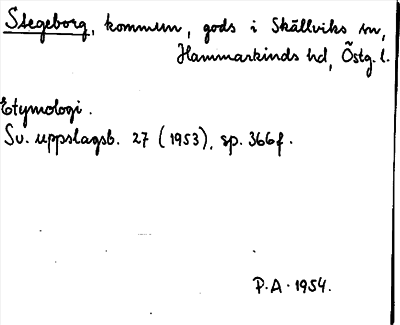 Stegeborg, kommun, gods i Skällviks sn,
Hammarkinds hd, Östg. l.
Etymologi.
Sv. uppslagsb. 27 (1953), sp. 366f.
P.A. 1954.